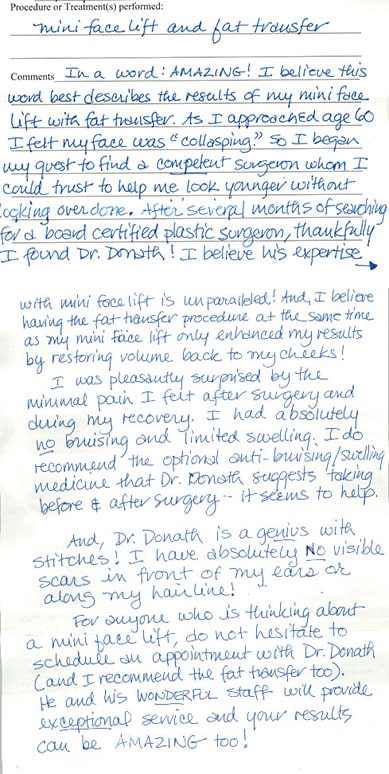 Procedure or Treatment(s) performed:
mini face lift and fat transfer
Comments In a word: AMAZING! I believe this
word best describes the results of my mini face
lift with fat transfer. As I approached age 60
I felt my face was "collasping." So I began
my quest to find a competent surgeon whom I
could trust to help me look younger without
looking over done. After several months of searching
for a board certified plastic surgeon, thankfully
I found Dr. Donath! I believe his expertise →
with mini face lift is unparalleled! And, I believe
having the fat transfer procedure at the same time
as my mini face lift only enhanced my results
by restoring volume back to my cheeks!
I was pleasantly surprised by the
minimal pain I felt after surgery and
during my recovery. I had absolutely
no bruising and limited swelling. I do
recommend the optional anti-bruising/swelling
medicine that Dr. Donath suggests taking
before & after surgery - it seems to help.
And, Dr. Donath is a genius with
stitches! I have absolutely NO visible
scars in front of my ears or
along my hairline!
For anyone who is thinking about
a mini face lift, do not hesitate to
schedule an appointment with Dr. Donath
(and I recommend the fat transfer too).
He and his WONDERFUL staff will provide
exceptional service and your results
can be AMAZING too!